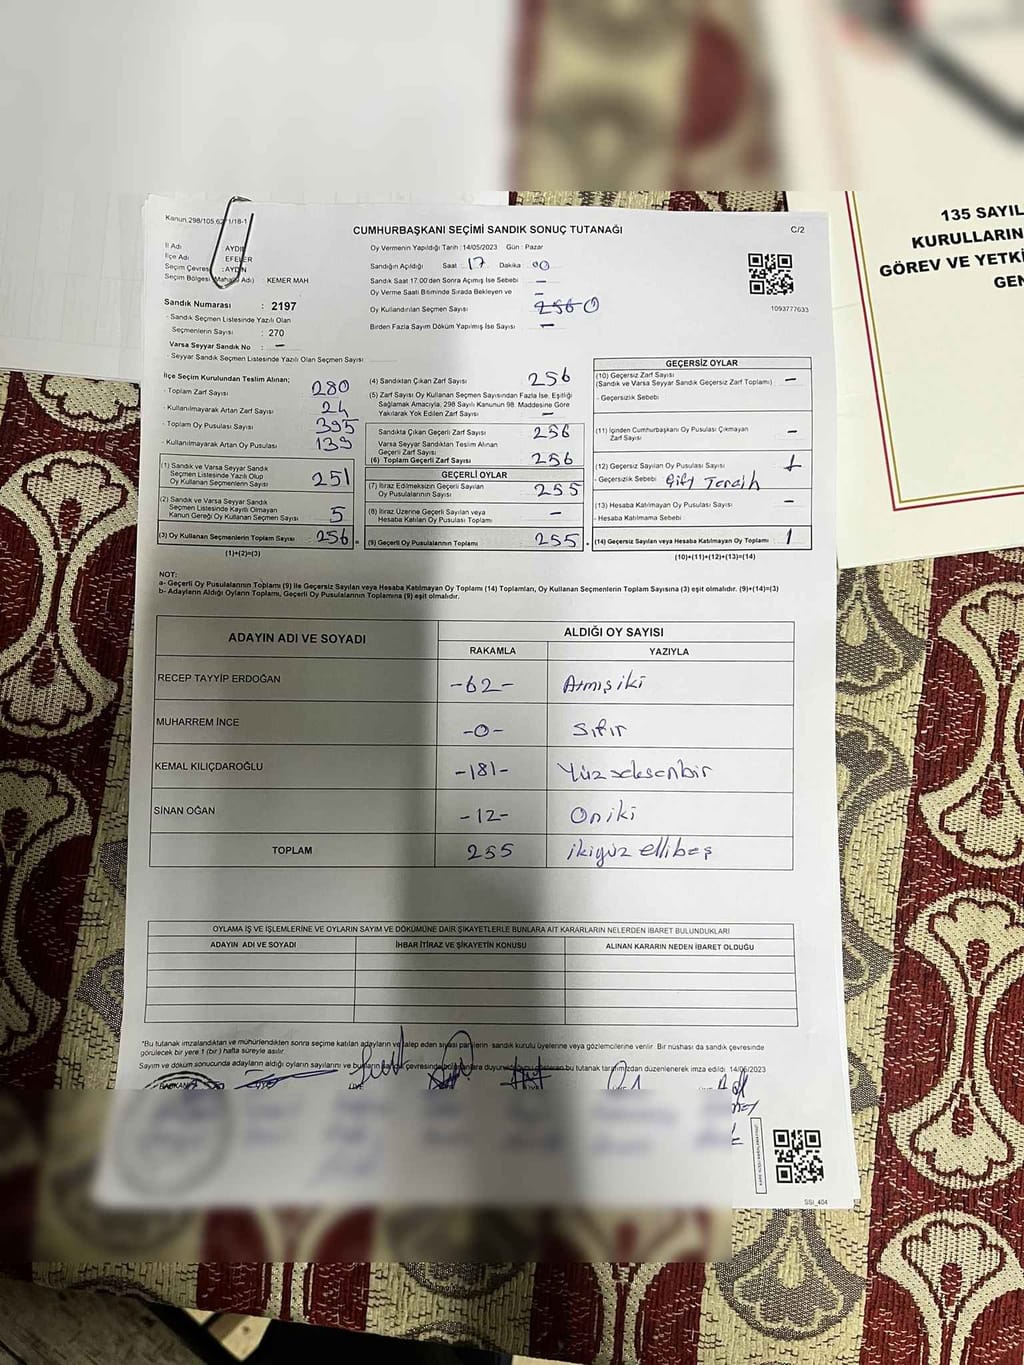 Kanun,298/105,62
1/18-1
CUMHURBAŞKANI SEÇİMİ SANDIK SONUÇ TUTANAĞI
C/2
İl Adı AYDIN
İlçe Adı EFELER
Seçim Çevresi : AYDIN
Seçim Bölgesi (Mahalle Adı) : KEMER MAH
Sandık Numarası : 2197
- Sandık Seçmen Listesinde Yazılı Olan
Seçmenlerin Sayısı : 270
Varsa Seyyar Sandık No : -
- Seyyar Sandık Listesinde Yazılı Olan Seçmen Sayısı
Oy Vermenin Yapıldığı Tarih : 14/05/2023 Gün : Pazar
Sandığın Açıldığı Saat 17 Dakika 00
Sandık Saat 17:00'den Sonra Açımış İse Sebebi -
Oy Verme Saati Bitiminde Sırada Bekleyen ve
Oy Kullandırılan Seçmen Sayısı 256 0
Birden Fazla Sayım Döküm Yapılmış İse Sayısı -
1093777633
İlçe Seçim Kurulundan Teslim Alınan;
- Toplam Zarf Sayısı 280
- Kullanılmayarak Artan Zarf Sayısı 24
- Toplam Oy Pusulası Sayısı 395
- Kullanılmayarak Artan Oy Pusulası 139
(1) Sandık ve Varsa Seyyar Sandık
Seçmen Listesinde Yazılı Olup
Oy Kullanan Seçmenlerin Sayısı 251
(2) Sandık ve Varsa Seyyar Sandık
Seçmen Listesinde Kayıtlı Olmayan
Kanun Gereği Oy Kullanan Seçmen Sayısı 5
(3) Oy Kullanan Seçmenlerin Toplam Sayısı 256
(1)+(2)=(3)
(4) Sandıktan Çıkan Zarf Sayısı 256
(5) Zarf Sayısı Oy Kullanan Seçmen Sayısından Fazla İse, Eşitliği
Sağlamak Amacıyla, 298 Sayılı Kanunun 98. Maddesine Göre
Yakılarak Yok Edilen Zarf Sayısı -
Sandıkta Çıkan Geçerli Zarf Sayısı 256
Varsa Seyyar Sandıktan Teslim Alınan
Geçerli Zarf Sayısı
(6) Toplam Geçerli Zarf Sayısı 256
GEÇERLİ OYLAR
(7) İtiraz Edilmeksizin Geçerli Sayılan
Oy Pusulalarının Sayısı 255
(8) İtiraz Üzerine Geçerli Sayılan veya
Hesaba Katılan Oy Pusulası Toplamı -
(9) Geçerli Oy Pusulalarının Toplamı 255
GEÇERSİZ OYLAR
(10) Geçersiz Zarf Sayısı
(Sandık ve Varsa Seyyar Sandık Geçersiz Zarf Toplamı) -
- Geçersizlik Sebebi
(11) İçinden Cumhurbaşkanı Oy Pusulası Çıkmayan
Zarf Sayısı -
(12) Geçersiz Sayılan Oy Pusulası Sayısı 1
- Geçersizlik Sebebi Çift Tercih
(13) Hesaba Katılmayan Oy Pusulası Sayısı -
- Hesaba Katılmama Sebebi
(14) Geçersiz Sayılan veya Hesaba Katılmayan Oy Toplamı 1
(10)+(11)+(12)+(13)=(14)
NOT:
a- Geçerli Oy Pusulalarının Toplamı (9) ile Geçersiz Sayılan veya Hesaba Katılmayan Oy Toplamı (14) Toplamları, Oy Kullanan Seçmenlerin Toplam Sayısına (3) eşit olmalıdır. (9)+(14)=(3)
b- Adayların Aldığı Oyların Toplamı, Geçerli Oy Pusulalarının Toplamına (9) eşit olmalıdır.
ADAYIN ADI VE SOYADI ALDIĞI OY SAYISI
RAKAMLA YAZIYLA
RECEP TAYYİP ERDOĞAN -62- Atmış iki
MUHARREM İNCE -0- Sıfır
KEMAL KILIÇDAROĞLU -181- Yüz seksenbir
SİNAN OĞAN -12- Oniki
TOPLAM 255 ikiyüz ellibeş
OYLAMA İŞ VE İŞLEMLERİNE VE OYLARIN SAYIM VE DÖKÜMÜNE DAİR ŞİKAYETLERLE BUNLARA AİT KARARLARIN NELERDEN İBARET BULUNDUKLARI
ADAYIN ADI VE SOYADI İHBAR İTİRAZ VE ŞİKAYETİN KONUSU ALINAN KARARIN NEDEN İBARET OLDUĞU
*Bu tutanak imzalandıktan ve mühürlendikten sonra seçime katılan adayların ve talep eden siyasi partilerin sandık kurulu üyelerine veya gözlemcilerine verilir. Bir nüshası da sandık çevresinde
görülecek bir yere 1 (bir) hafta süreyle asılır.
Sayım ve döküm sonucunda adayların aldığı oyların sayılarını ve bunların
bu tutanak tarafımızdan düzenlenerek imza edildi. 14/05/2023
BAŞKAN ÜYE ÜYE
SSI_404
135 SAYIL
KURULLARIN
GÖREV VE YETKİ
GEN